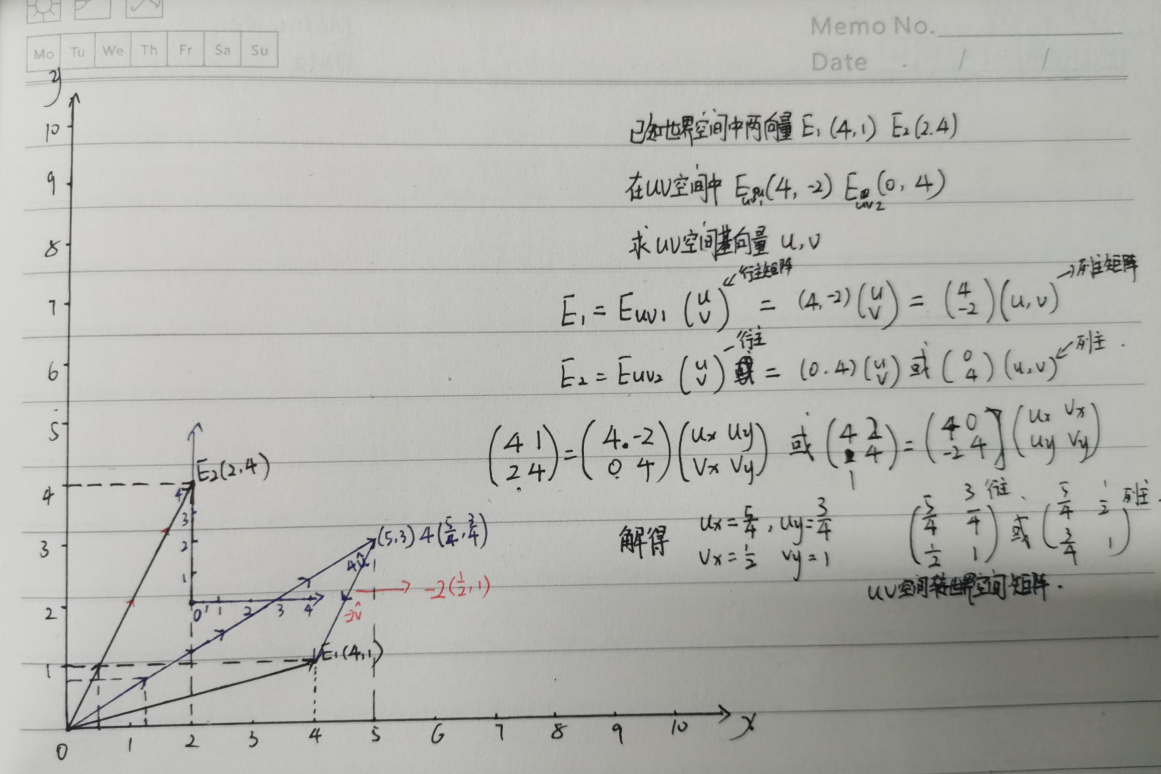 Mo Tu We Th Fr Sa Su
Memo No.
Date / /
已知世界空间中两向量 E₁(4,1) E₂(2.4)
在UV空间中 Euv₁(4,-2) Euv₂(0,4)
求UV空间基向量 u,v
行主矩阵 列主矩阵
E₁ = Euv₁ (u v) = (4,-2)(u v) = (4 -2)(u,v)
行主 列主.
E₂ = Euv₂ (u v) = (0.4)(u v) 或 (0 4)(u,v)
(4 1 2 4) = (4 -2 0 4)(ux uy vx vy) 或 (4 2 1 4) = (4 0 -2 4)(ux vx uy vy)
解得 ux=5/4, uy=3/4
vx=1/2 vy=1
(5/4 3/4 1/2 1) 行主 或 (5/4 1/2 3/4 1) 列主
UV空间转世界空间矩阵.
y
10
9
8
7
6
5
4
3
2
1
0 1 2 3 4 5 6 7 8 9 10 x
E₂(2,4)
4
3
2
1
0 1 2 3 4
(5,3) 4(5/4,3/4)
-2(1/2,1)
E₁(4,1)